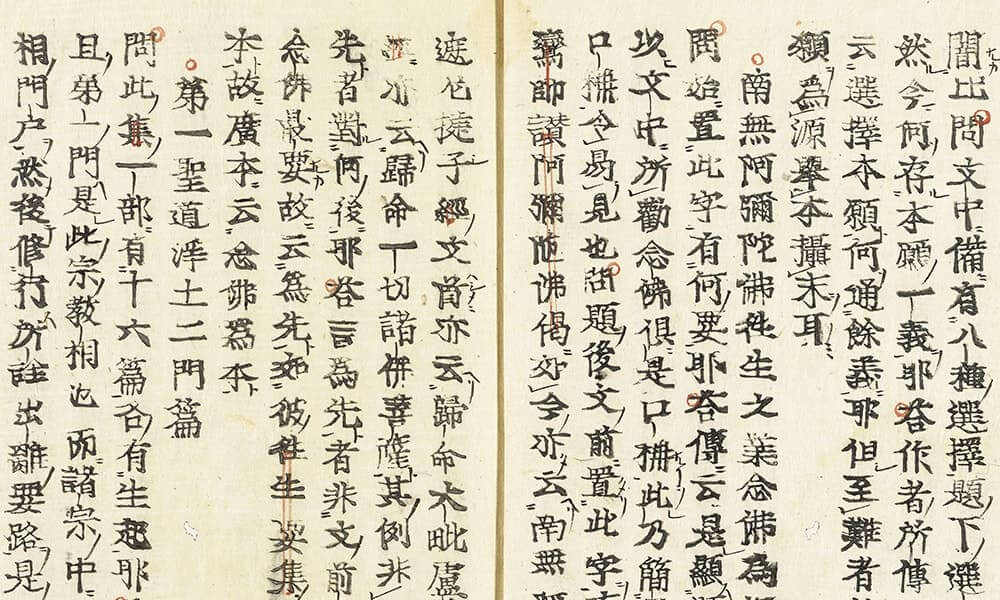 闇比問文中備有八種選擇題下選
然今何存本願一義耶答作者所傳
云選擇本願何通餘義耶但至難者
願爲源擧本攝末耳
南無阿彌陀佛往生之業念佛爲
問始置此字有何要耶答傳云是顯
以文中所勸念佛俱是口称此乃簡
口称令易見也問題後文前置此字
鸞師讃阿彌陀佛偈処今亦云南無
遮尼揵子經文首亦云歸命大毗盧
亦云歸命一切諸佛菩薩其例非
先者對何後耶答言爲先者非文前
念佛最要故云爲先如彼往生要集
本故廣本云念佛爲本
第一聖道淨土二門篇
問此集一部有十六篇各有生起耶
且第一門是此宗教相也而諸宗中
相門户然後修行所詮出離要路是